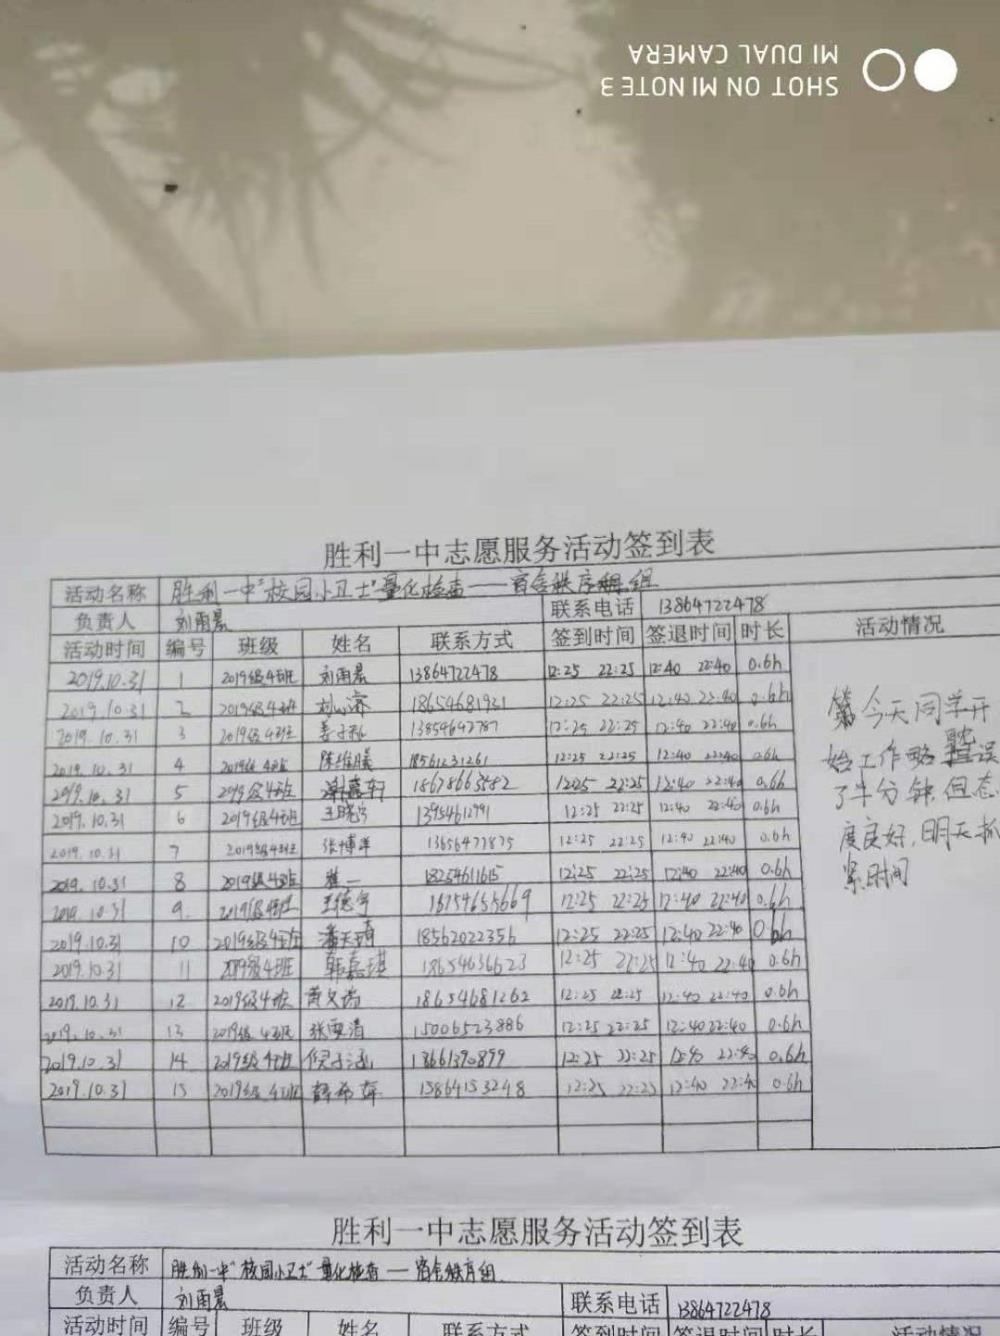 SHOT ON MI NOTE 3
MI DUAL CAMERA
胜利一中志愿服务活动签到表
活动名称 胜利一中"校园小卫士"量化检查——宿舍秩序组
负责人 刘雨晨 联系电话 13864722478
活动时间 编号 班级 姓名 联系方式 签到时间 签退时间 时长 活动情况
2019.10.31 1 2019级4班 刘雨晨 13864722478 12:25 22:25 12:40 22:40 0.6h
2019.10.31 2 2019级4班 18654681931 12:25 22:25 12:40 22:40 0.6h
2019.10.31 3 2019级4班 13854642787 12:25 22:25 12:40 22:40 0.6h
2019.10.31 4 2019级4班 陈维晨 18561231261 12:25 22:25 12:40 22:40 0.6h
2019.10.31 5 2019级4班 12:25 22:25 12:40 22:40 0.6h
2019.10.31 6 2019级4班 王晓宁 13954612991 12:25 22:25 12:40 22:40 0.6h
2019.10.31 7 2019级4班 张博洋 13656477875 12:25 22:25 12:40 22:40 0.6h
2019.10.31 8 2019级4班 18254611615 12:25 22:25 12:40 22:40 0.6h
2019.10.31 9 2019级4班 王德宇 12:25 22:25 12:40 22:40 0.6h
2019.10.31 10 2019级4班 潘天琦 18562022356 12:25 22:25 12:40 22:40 0.6h
2019.10.31 11 2019级4班 韩嘉琪 18654636623 12:25 22:25 12:40 22:40 0.6h
2019.10.31 12 2019级4班 黄文尚 18654681262 12:25 22:25 12:40 22:40 0.6h
2019.10.31 13 2019级4班 张雯清 15006523886 12:25 22:25 12:40 22:40 0.6h
2019.10.31 14 2019级4班 侯子涵 18661390899 12:25 22:25 12:40 22:40 0.6h
2019.10.31 15 2019级4班 薛希年 13864153248 12:25 22:25 12:40 22:40 0.6h
今天同学开
始工作略 误
了半分钟,但态
度良好,明天抓
紧时间
胜利一中志愿服务活动签到表
活动名称 胜利一中"校园小卫士"量化检查——宿舍秩序组
负责人 刘雨晨 联系电话 13864722478
活动时间 编号 班级 姓名 联系方式 签到时间 签退时间 时长 活动情况